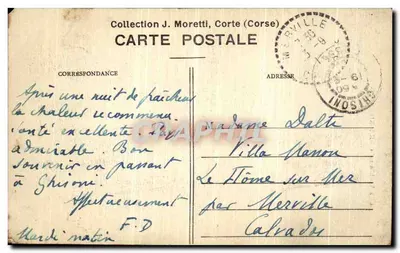 Collection J. Moretti, Corte (Corse)
CARTE POSTALE
CORRESPONDANCE
ADRESSE
MERVILLE
GHISONI
Après une nuit de fraîcheur
la chaleur recommence
santé excellente. Pays
admirable. Bon
souvenir en passant
à Ghisoni.
Affectueusement
F. D
Mardi matin
Madame Dalté
Villa Manon
Le Hôme sur Mer
par Merville
Calvados